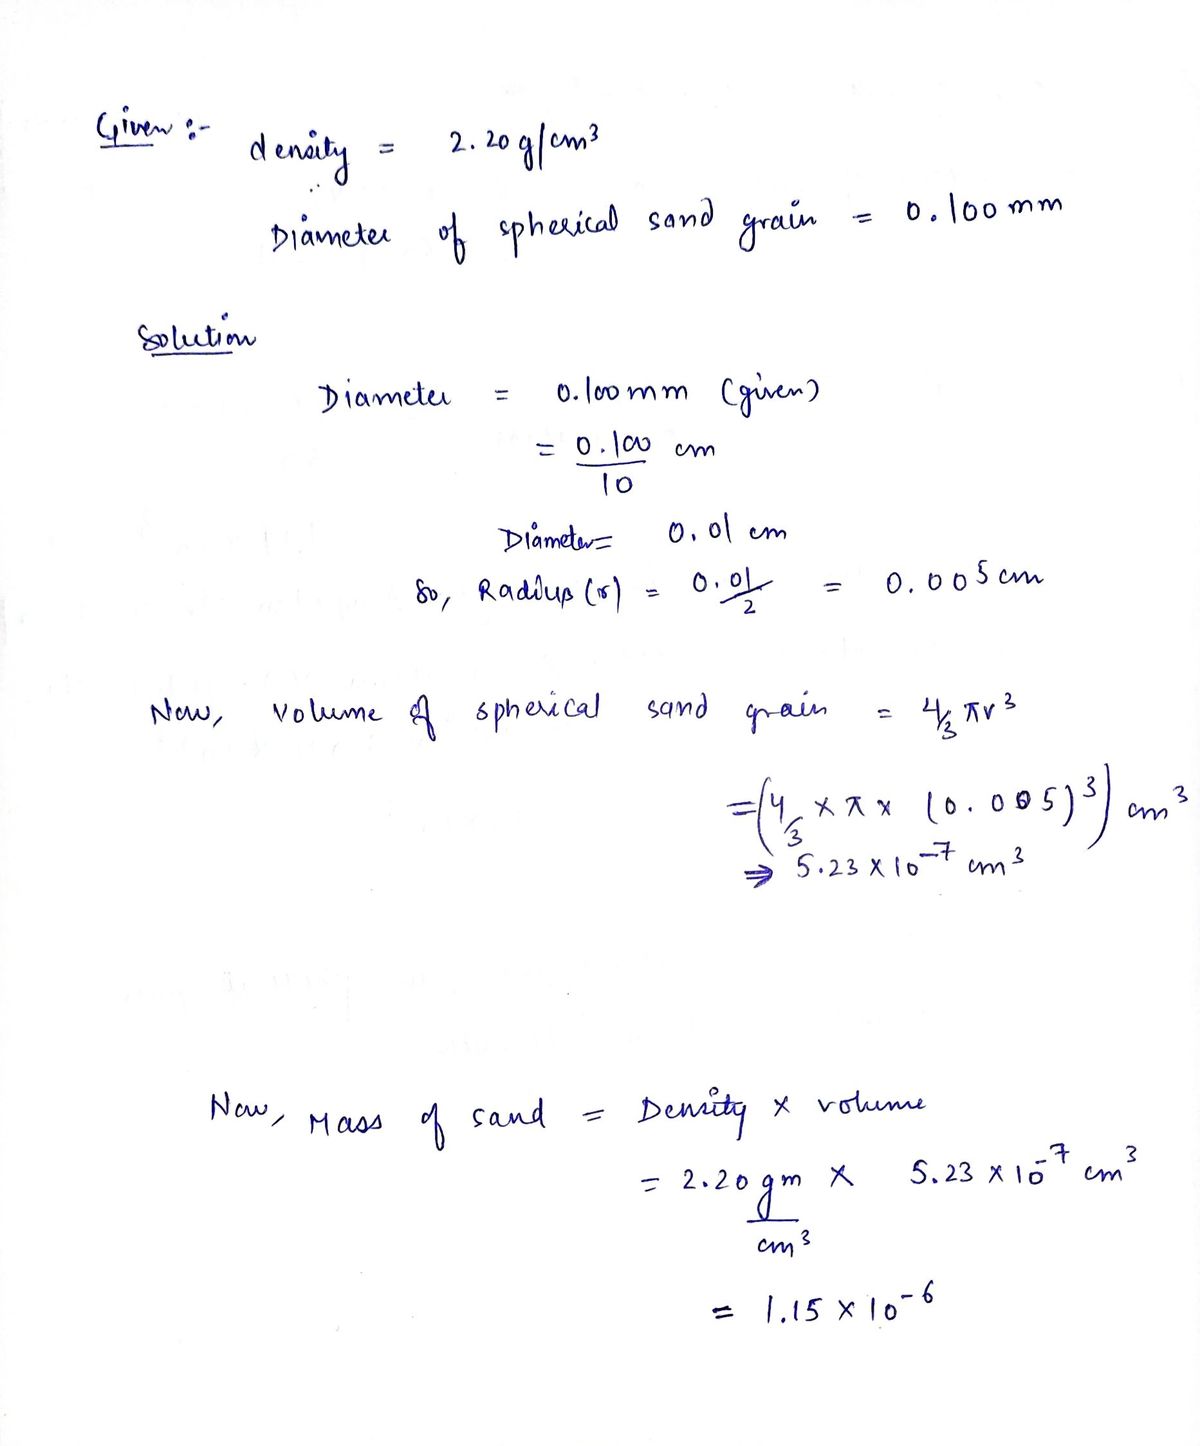 Given :-
density = 2.20 g/cm³
Diameter of spherical sand grain = 0.100 mm
Solution
Diameter = 0.100 mm (given)
= 0.100/10 cm
Diameter = 0.01 cm
So, Radius (r) = 0.01/2 = 0.005 cm
Now, volume of spherical sand grain = 4/3 πr³
= (4/3 × π × (0.005)³) cm³
⇒ 5.23 × 10⁻⁷ cm³
Now, Mass of sand = Density × volume
= 2.20 gm/cm³ × 5.23 × 10⁻⁷ cm³
= 1.15 × 10⁻⁶